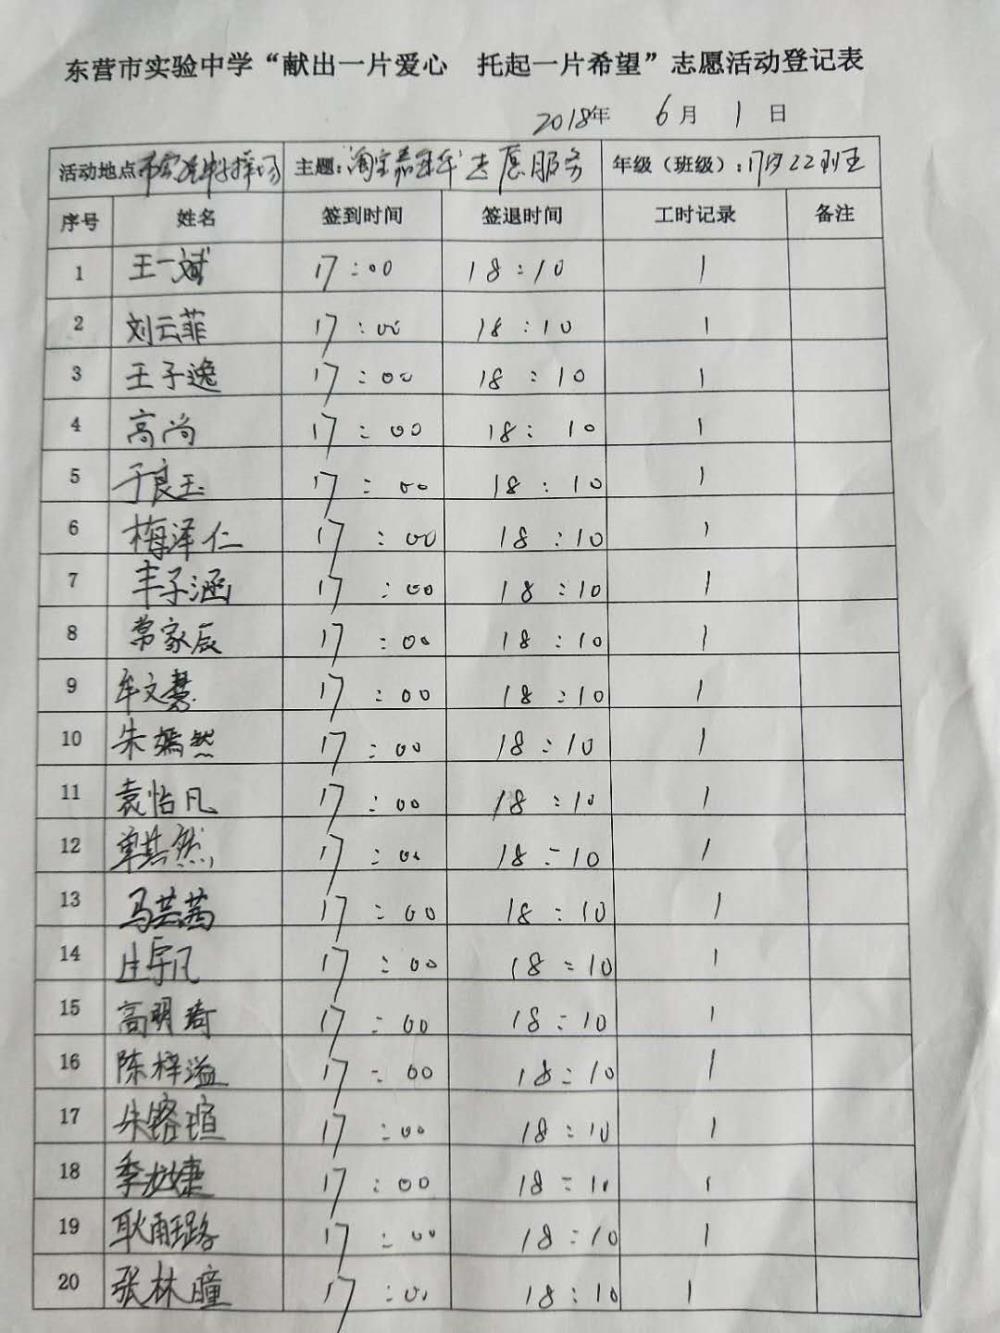 东营市实验中学“献出一片爱心 托起一片希望”志愿活动登记表
2018年 6月 1日
活动地点 主题: 志愿服务 年级（班级）：17级22班
序号 姓名 签到时间 签退时间 工时记录 备注
1 王一斌 17:00 18:10 1
2 刘云菲 17:00 18:10 1
3 王子逸 17:00 18:10 1
4 高尚 17:00 18:10 1
5 于良玉 17:00 18:10 1
6 梅泽仁 17:00 18:10 1
7 丰子涵 17:00 18:10 1
8 常家辰 17:00 18:10 1
9 牟文慧 17:00 18:10 1
10 朱嫣然 17:00 18:10 1
11 袁怡凡 17:00 18:10 1
12 单其然 17:00 18:10 1
13 马芸茜 17:00 18:10 1
14 庄宇凡 17:00 18:10 1
15 高明琦 17:00 18:10 1
16 陈梓溢 17:00 18:10 1
17 朱铭瑄 17:00 18:10 1
18 季婕 17:00 18:10 1
19 耿璐 17:00 18:10 1
20 张林瞳 17:00 18:10 1